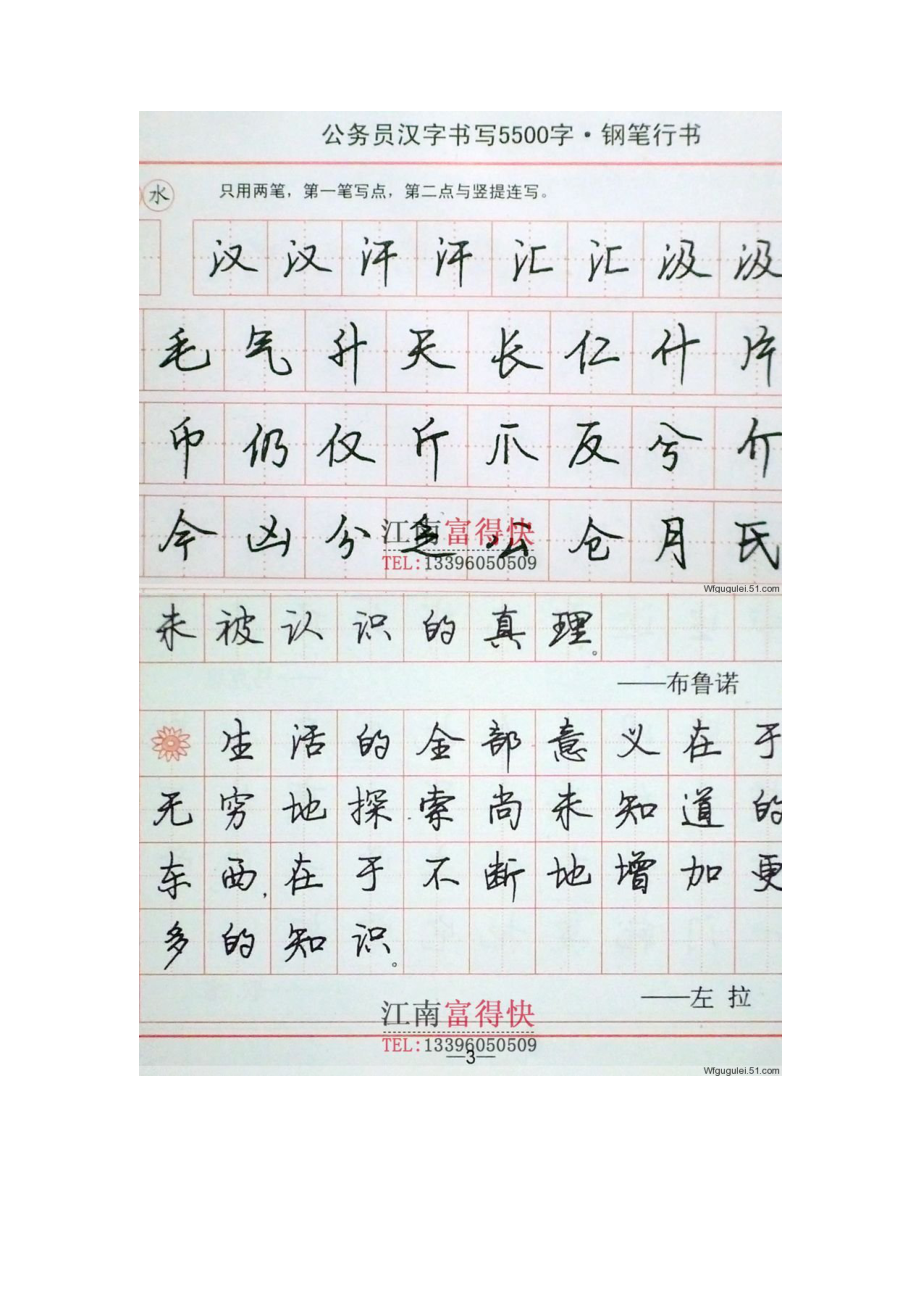 公务员汉字书写5500字·钢笔行书
水 只用两笔，第一笔写点，第二点与竖提连写。
汉汉汗汗汇汇汲汲
毛气升夭长仁什片
币仍仅斤爪反兮介
今凶分公仓月氏
江南富得快
TEL:13396050509
Wfgugulei.51.com
未被认识的真理。
——布鲁诺
生活的全部意义在于
无穷地探索尚未知道的
东西,在于不断地增加更
多的知识。
——左拉
江南富得快
TEL:13396050509
—3—
Wfgugulei.51.com